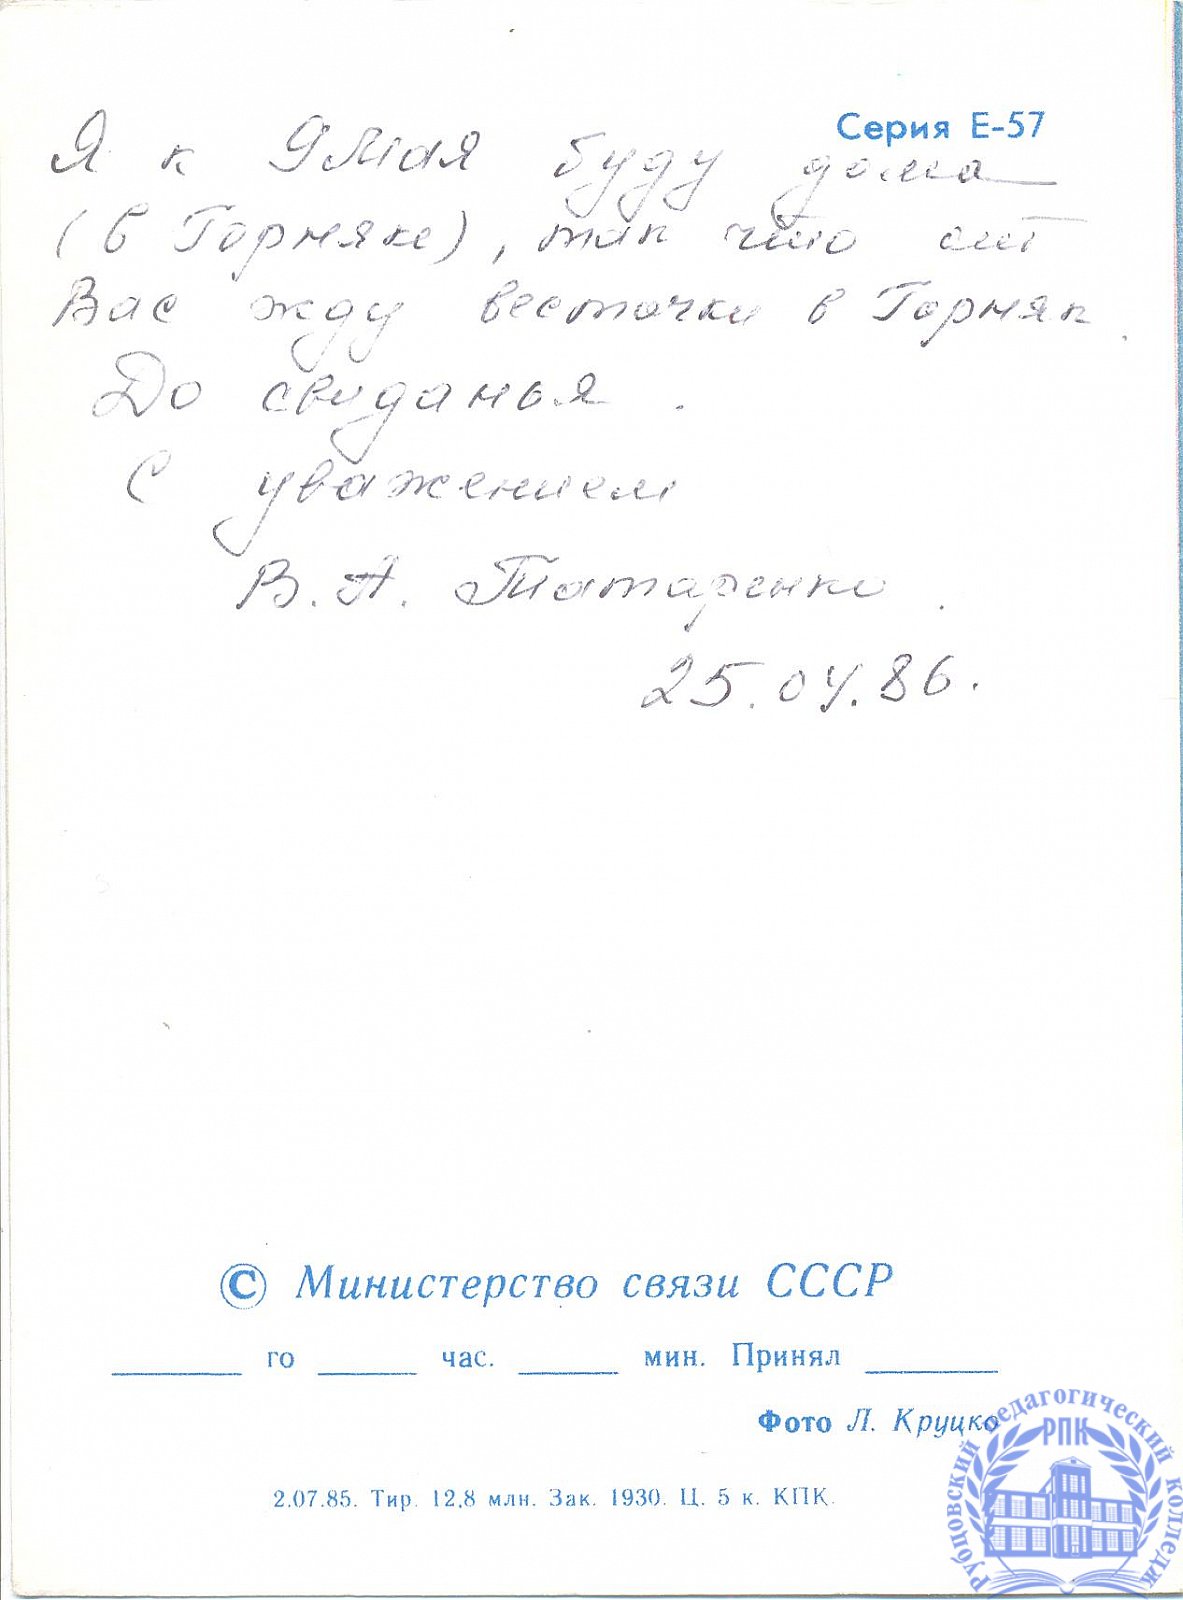 Серия Е-57
Я к 9 мая буду дома
(в Горняке), так что от
Вас жду весточки в Горняк.
До свиданья.
С уважением
В. А. Татаренко.
25.04.86.
© Министерство связи СССР
го час. мин. Принял
Фото Л. Круцко
2.07.85. Тир. 12,8 млн. Зак. 1930. Ц. 5 к. КПК.
Рубцовский педагогический колледж
РПК